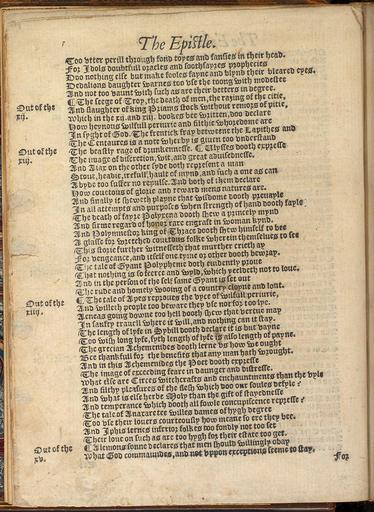 The Epistle.
Too vtter perill through fond toyes and fansies in their head.
For Idols doubtfull oracles and soothsayres prophecies
Doo nothing else but make fooles fayne and blynd their bleared eyes.
Dedalions daughter warnes too vse the toong with modestee
And not too vaunt with such as are their betters in degree.
Out of the xij.
¶ The seege of Troy, the death of men, the razing of the citie,
And slaughter of king Priams stock without remors of pitie,
Which in the xij. and xiij. bookes bee written, doo declare
How heynous wilfull periurie and filthie whoredome are
In syght of God. The frentick fray betweene the Lapithes and
The Centaures is a note wherby is giuen too vnderstand
Out of the xiij.
The beastly rage of drunkennesse. ¶ Vlysses dooth expresse
The image of discretion, wit, and great aduisednesse.
And Aiax on the other syde doth represent a man
Stout, headie, irefull, hault of mynd, and such a one as can
Abyde too suffer no repulse. And both of them declare
How couetous of glorie and reward mens natures are.
And finally it sheweth playne that wisdome dooth preuayle
In all attempts and purposes when strength of hand dooth fayle
The death of fayre Polyxena dooth shew a princely mynd
And firme regard of honor rare engraft in woman kynd.
And Polymnestor king of Thrace dooth shew himself to bee
A glasse for wretched couetous folke wherein themselues to see
This storie further witnesseth that murther crieth ay
For vengeance, and itself one tyme or other dooth bewray.
The tale of Gyant Polypheme doth euidently proue
That nothing is so feerce and wyld, which yeeldeth not to loue.
And in the person of the self same Gyant is set out
The rude and homely wooing of a country cloyne and lout.
Out of the xiiij.
¶ The tale of Apes reproues the vyce of wilfull periurie,
And willeth people too beware they vse not for too lye.
Aeneas going downe too hell dooth shew that vertue may
In saufty trauell where it will, and nothing can it stay.
The length of lyfe in Sybill dooth declare it is but vayne
Too wish long lyfe, syth length of lyfe is also length of payne.
The grecian Achemenides dooth lerne vs how we ought
Bee thankfull for the benefits that any man hath wrought.
And in this Achemenides the Poet dooth expresse
The image of exceeding feare in daunger and distresse.
What else are Circes witchcrafts and enchauntments than the vyle
And filthy pleasures of the flesh which doo our soules defyle?
And what is else herbe Moly than the gift of stayednesse
And temperance which dooth all fowle concupiscence represse?
The tale of Anaxaretee willes dames of hygh degree
Too vse their louers courteously how meane so ere they bee.
And Iphis lernes inferior folkes too fondly not too set
Their loue on such as are too hygh for their estate too get.
Out of the xv.
¶ Alemons sonne declares that men should willingly obay
What God commaundes, and not vppon exceptions seeme to stay.
For